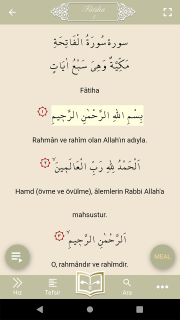 Fâtiha
1
سورة سُورَةُ الْفَاتِحَةِ
مَكِّيَّةٌ وَهِيَ سَبْعُ اٰيَاتٍ
Fâtiha
بِسْمِ اللّٰهِ الرَّحْمٰنِ الرَّح۪يمِ ١
Rahmân ve rahîm olan Allah'ın adıyla.
اَلْحَمْدُ لِلّٰهِ رَبِّ الْعَالَم۪ينَۙ ٢
Hamd (övme ve övülme), âlemlerin Rabbi Allah'a
mahsustur.
اَلرَّحْمٰنِ الرَّح۪يمِۙ ٣
O, rahmândır ve rahîmdir.
MEAL
Hız
Tefsir
Ara